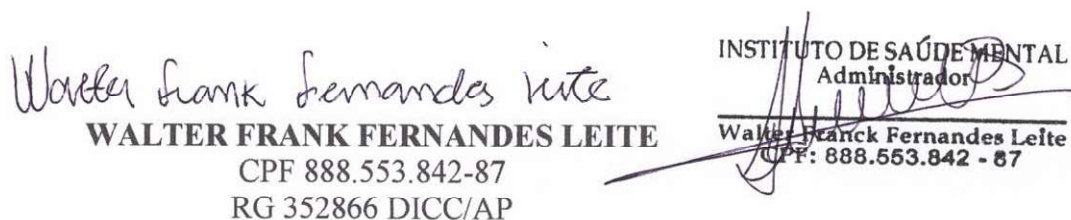 Walter Frank Fernandes Leite
WALTER FRANK FERNANDES LEITE
CPF 888.553.842-87
RG 352866 DICC/AP
INSTITUTO DE SAÚDE MENTAL
Administrador
Walter Franck Fernandes Leite
CPF: 888.553.842 - 87